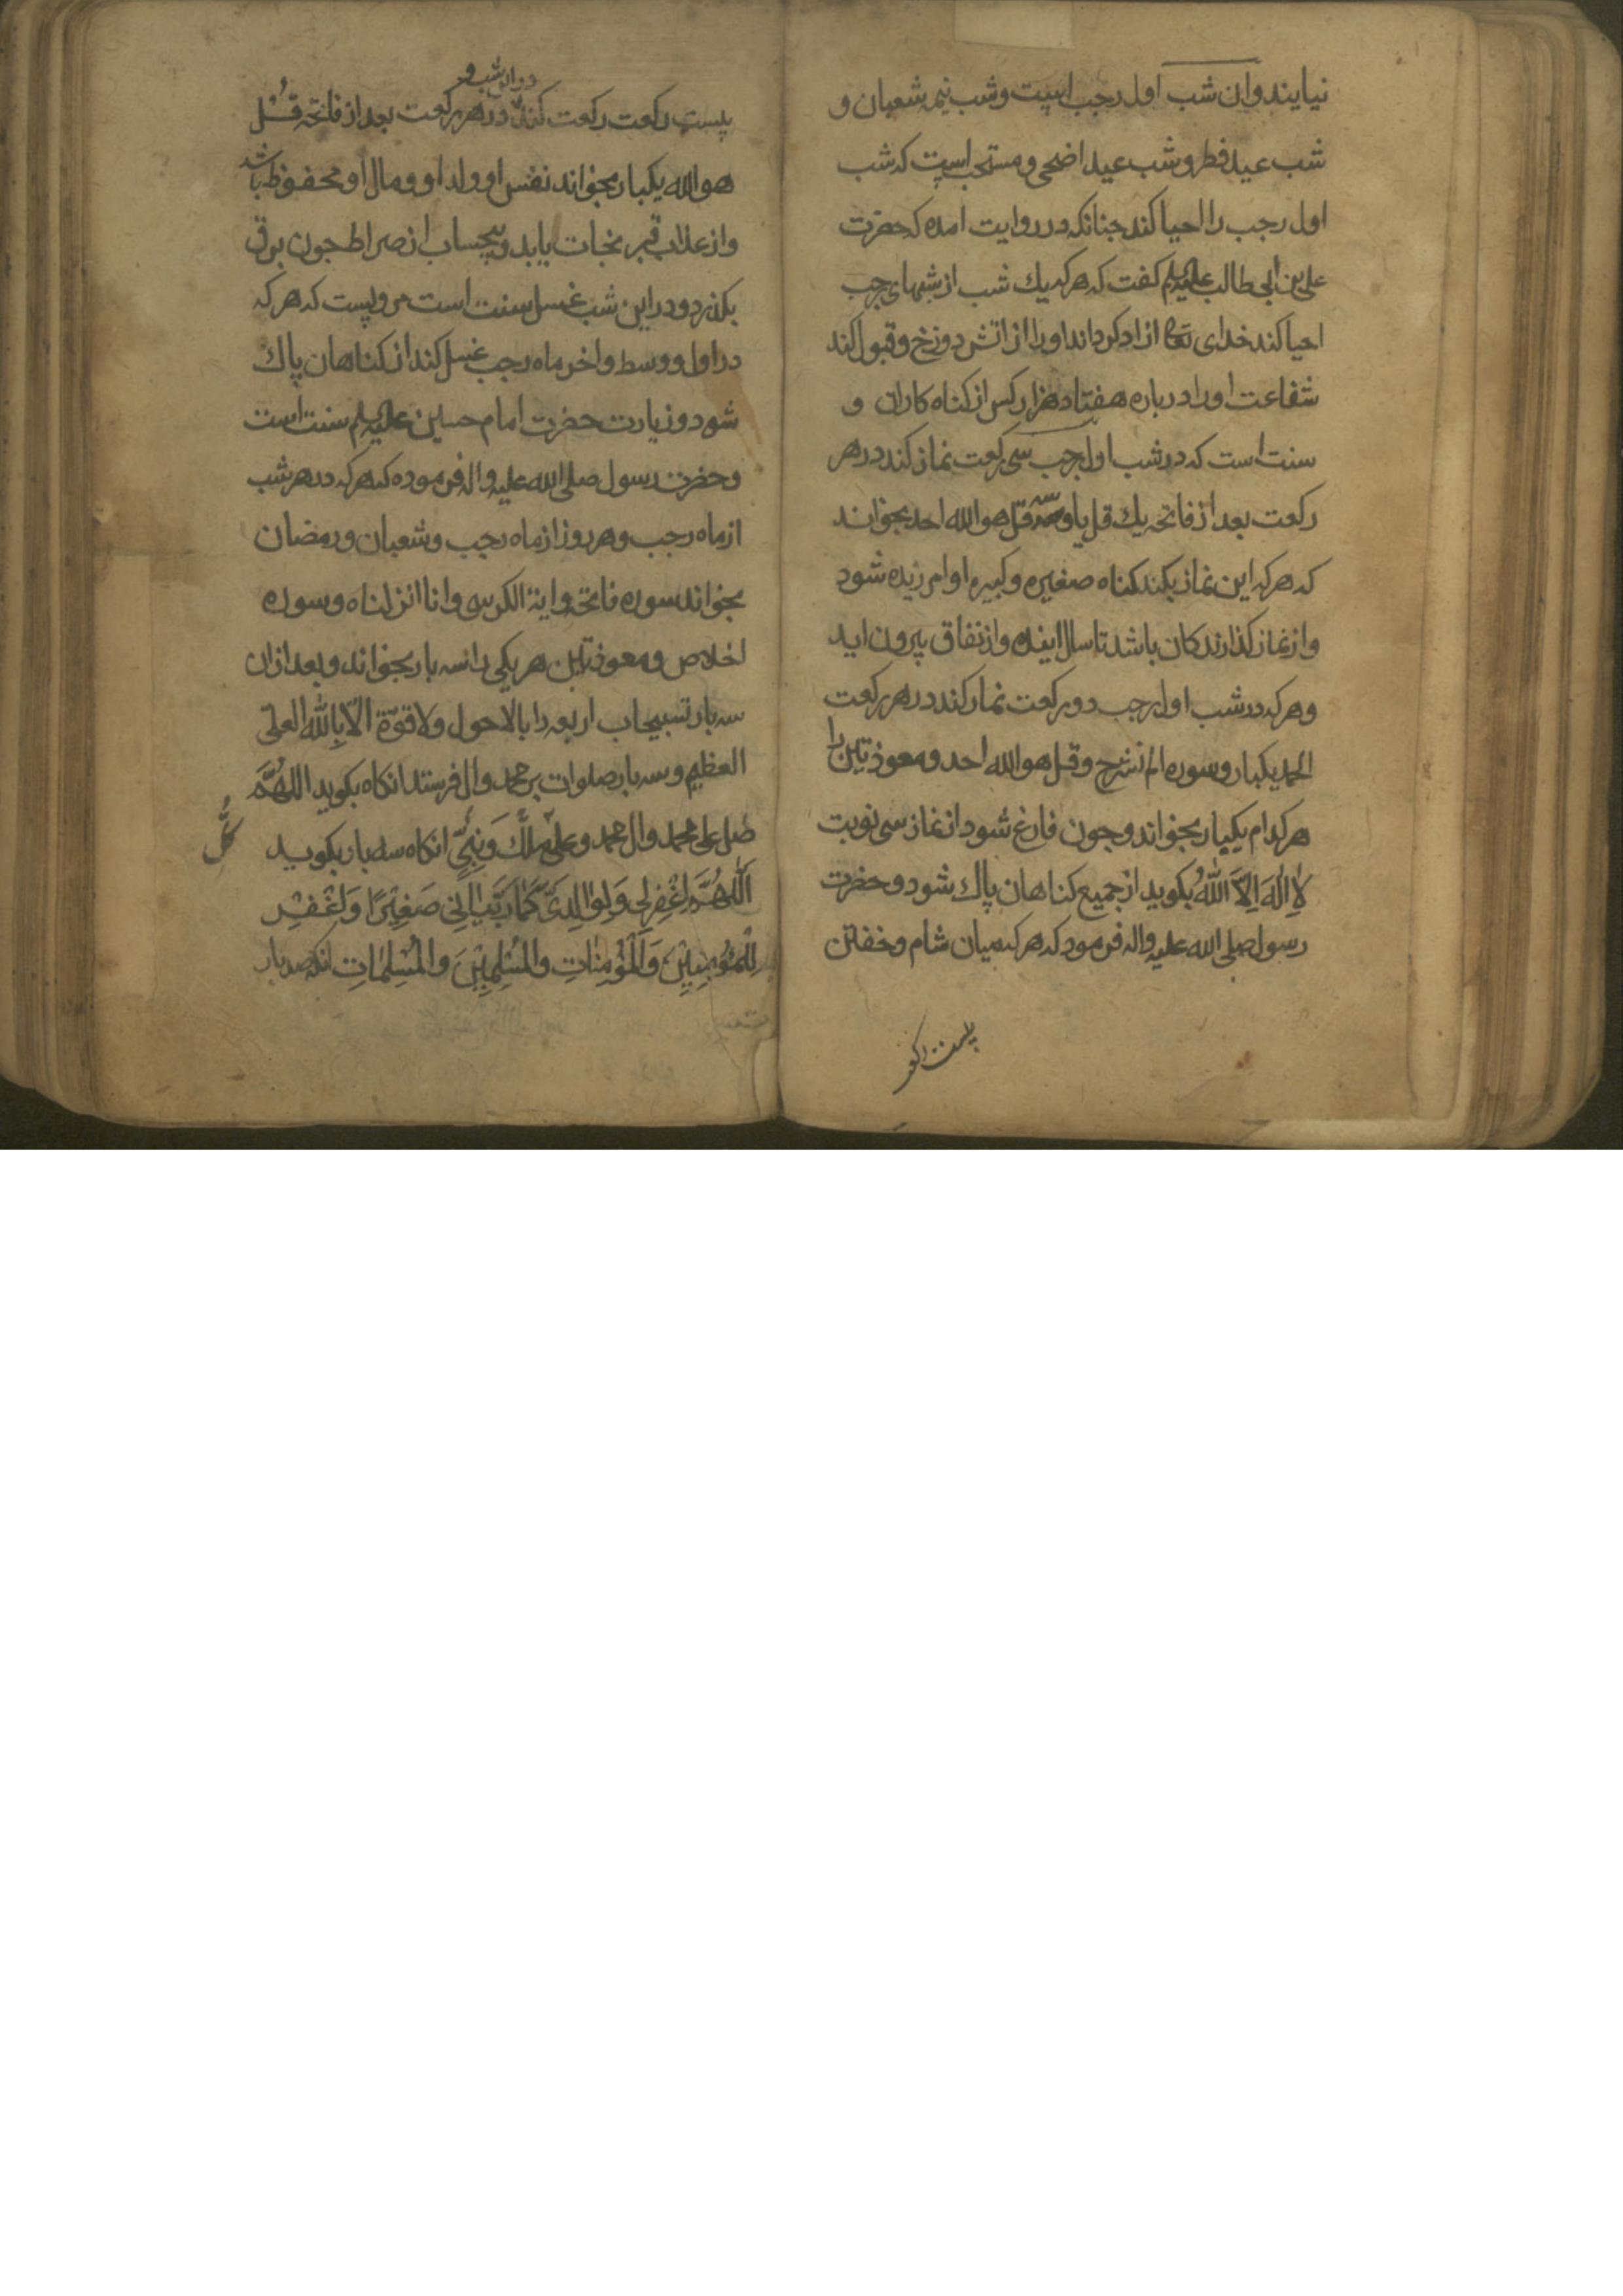 نیایند وان شب اول رجب است و شب نیمه شعبان و
شب عید فطر و شب عید اضحی و مستحب است که شب
اول رجب را احیا کند جنانکه در روایت امده که حضرت
علی بن ابی طالب علیه السلم کفت که هر که یك شب از شبهای رجب
احیا کند خدای تعالی ازاد کرداند او را از اتش دوزخ و قبول کند
شفاعت او را در باره هفتاد هزار کس از کناه کاران و
سنت است که در شب اول رجب سی رکعت نماز کند در هر
رکعت بعد از فاتحه یك قل یا و سه قل هو الله احد بخواند
که هر که این نماز بکند کناه صغیره و کبیره او امرزیده شود
و از نماز کذارندکان باشد تا سال اینده و از نفاق بیرون اید
و هر که در شب اول رجب دو رکعت نماز کند در هر رکعت
الحمد یکبار و سوره الم نشرح و قل هو الله احد و معوذتین را
هر کدام یکبار بخواند و جون فارغ شود از نماز سی نوبت
لاٰ اِلٰهَ اِلاَّ اللّٰهُ بکوید از جمیع کناهان پاك شود و حضرت
رسول صلی الله علیه واله فرمود که هر که میان شام و خفتن
بیست رکو
در ان شب و
بیست رکعت رکعت کند در هر رکعت بعد از فاتحه قُل
هو الله یکبار بخواند نفس او و ولد او و مال او محفوظ باشد
و از عذاب قبر نجات یابد و بیحساب از صراط جون برق
بکذرد و در این شب غسل سنت است مرویست که هر که
در اول و وسط و اخر ماه رجب غسل کند از کناهان پاك
شود و زیارت حضرت امام حسین علیه السلم سنت است
و حضرت رسول صلی الله علیه واله فرموده که هر که در هر شب
از ماه رجب و هر روز از ماه رجب و شعبان و رمضان
بخواند سوره فاتحه و ایة الکرسی و انا انزلناه و سوره
اخلاص و معوذتین هر یکی را سه بار بخواند و بعد از ان
سه بار تسبیحات اربعه را با لا حول ولا قوّة الّا بِاللّٰه العلیّ
العظیم و سه بار صلوات بر محمد و ال فرستد انکاه بکوید اللهُمَّ
صَلِّ علی محمد وال محمد وعلی کُلِّ مَلَكٍ وَنَبِیٍّ انکاه سه بار بکوید
اَللّٰهُمَّ اغْفِرلی وَلِوٰالِدَیَّ کَمٰا رَبَّیٰانِی صَغِیْرًا وَاغْفِرْ
لِلْمُؤْمِنِیْنَ وَالْمُؤْمِنٰاتِ وَالْمُسْلِمِیْنَ وَالْمُسْلِمٰاتِ انکه صد بار